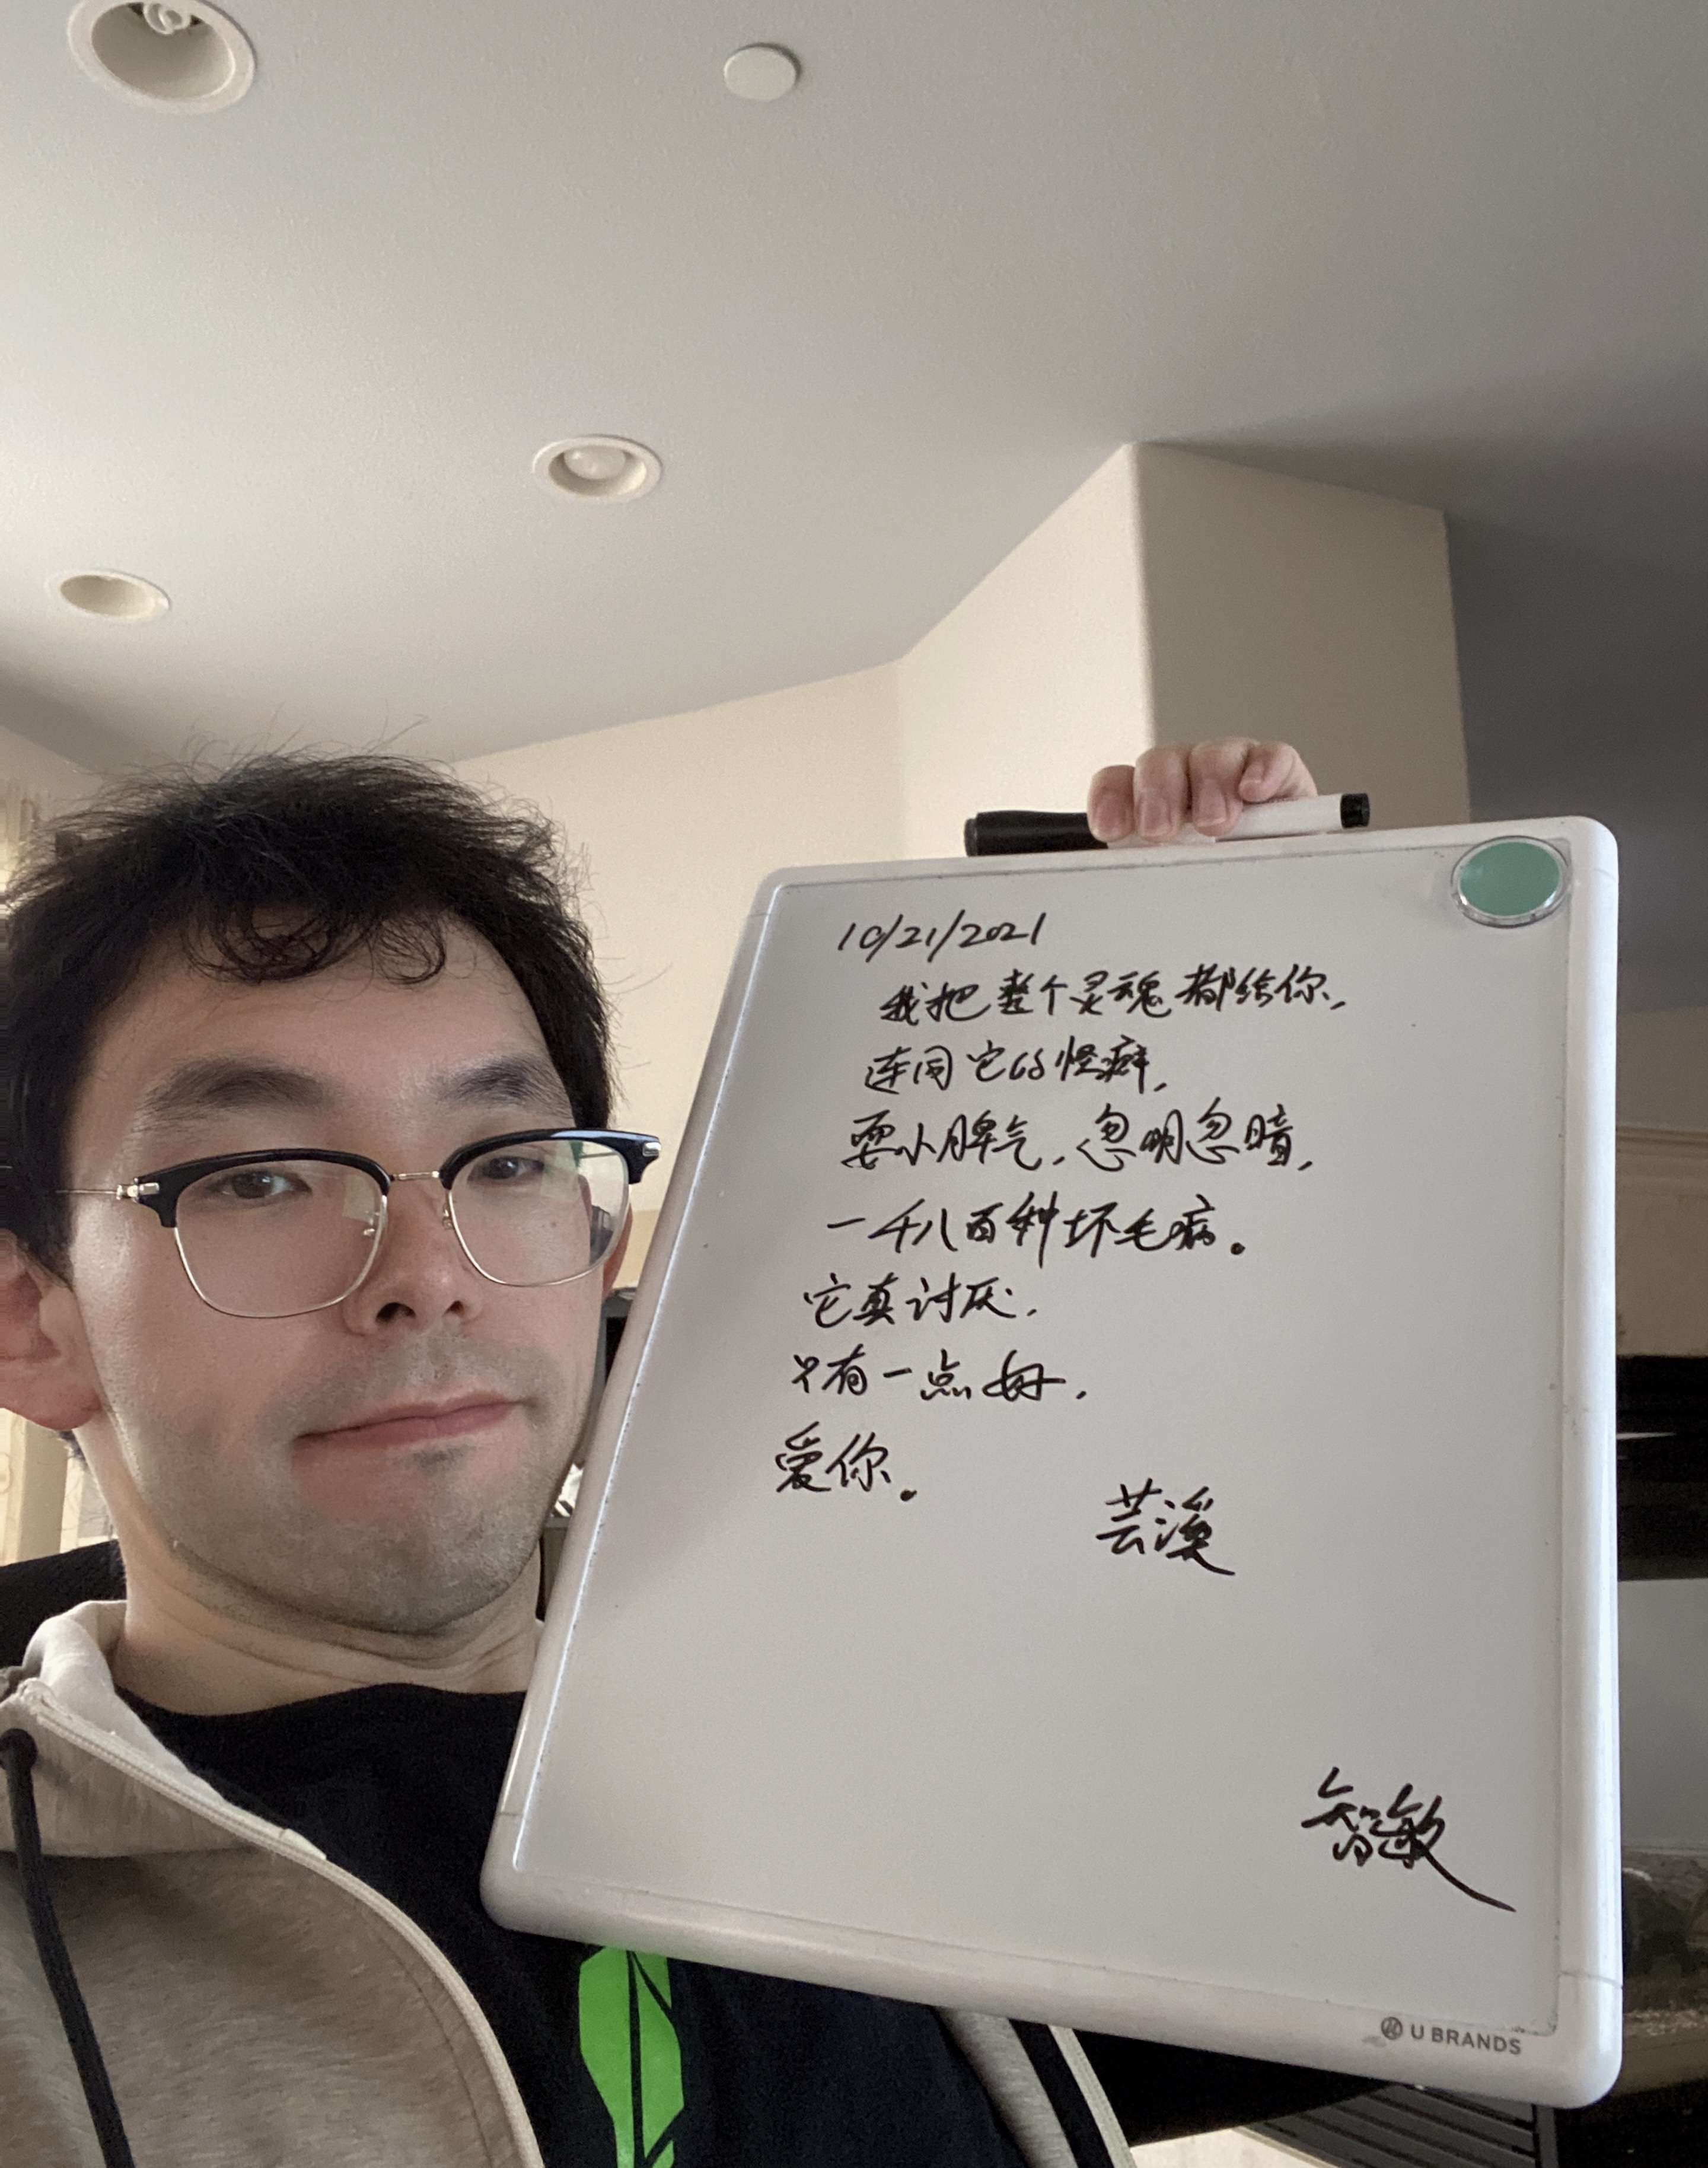 10/21/2021
我把整个灵魂都给你,
连同它的怪癖,
耍小脾气,忽明忽暗,
一千八百种坏毛病。
它真讨厌,
只有一点好,
爱你。
芸溪
智敏
U BRANDS